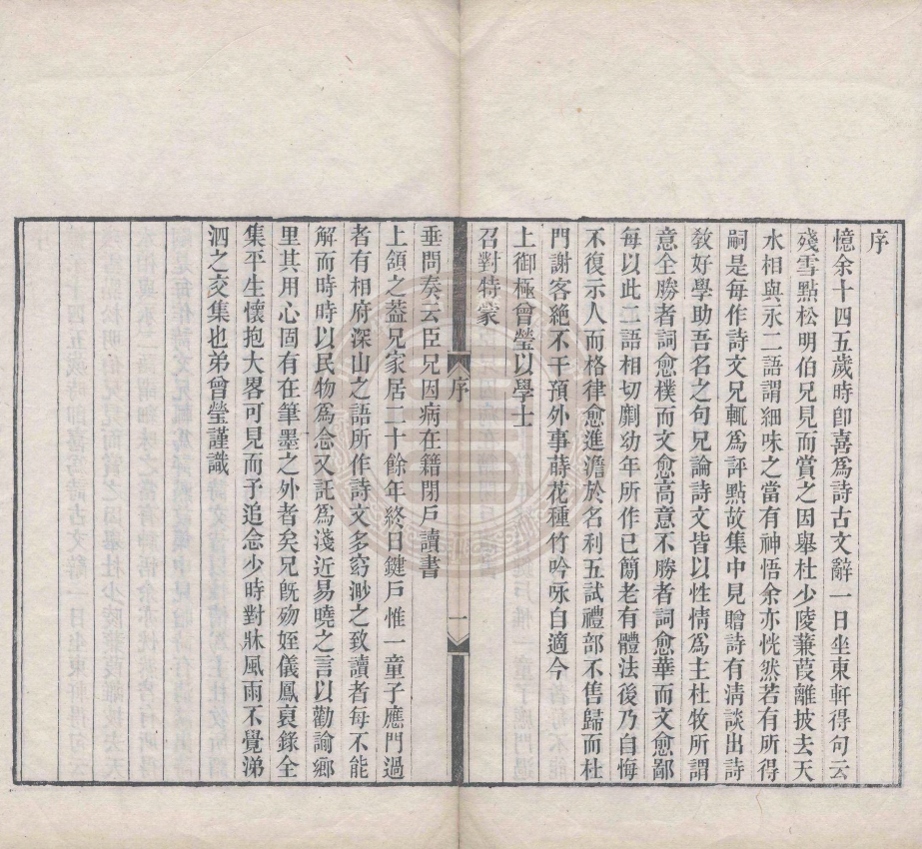 序
憶余十四五歲時卽喜爲詩古文辭一日坐東軒得句云
殘雪點松明伯兄見而賞之因舉杜少陵蒹葭離披去天
水相與永二語謂細味之當有神悟余亦恍然若有所得
嗣是每作詩文兄輒爲評點故集中見贈詩有淸談出詩
敎好學助吾名之句兄論詩文皆以性情爲主杜牧所謂
意全勝者詞愈樸而文愈高意不勝者詞愈華而文愈鄙
每以此二語相切劘幼年所作已簡老有體法後乃自悔
不復示人而格律愈進澹於名利五試禮部不售歸而杜
門謝客絶不干預外事蒔花種竹吟咏自適今
上御極曾瑩以學士
召對特蒙
序
一
垂問奏云臣兄因病在籍閉戶讀書
上頷之葢兄家居二十餘年終日鍵戶惟一童子應門過
者有相府深山之語所作詩文多窈渺之致讀者每不能
解而時時以民物爲念又託爲淺近易曉之言以勸諭鄉
里其用心固有在筆墨之外者矣兄旣歿姪儀鳳裒錄全
集平生懷抱大畧可見而予追念少時對牀風雨不覺涕
泗之交集也弟曾瑩謹識